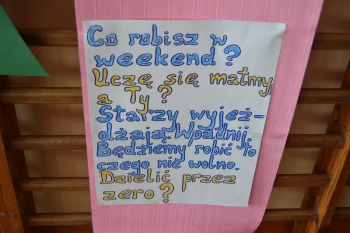 Co robisz w
weekend?
Uczę się matmy,
a Ty?
Starzy wyjeż-
dżają, wpadnij,
Będziemy robić to
czego nie wolno.
Dzielić przez
zero?